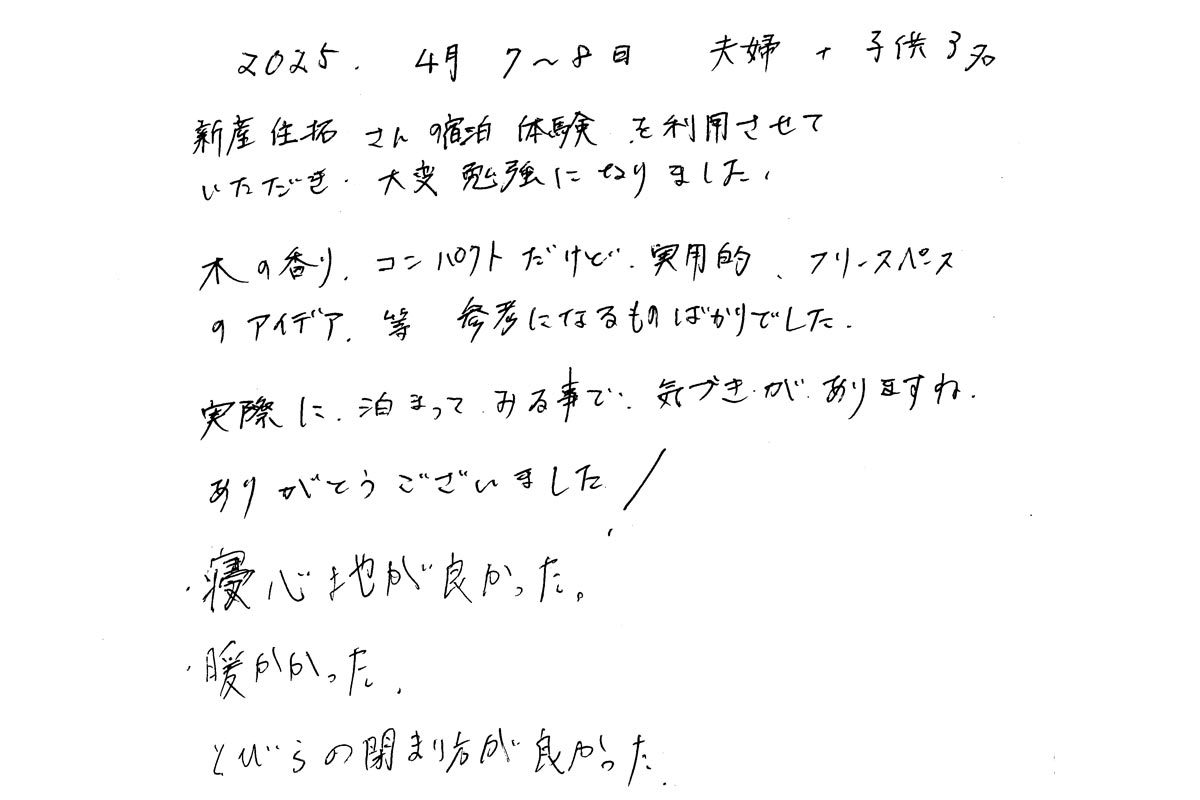 2025. 4月 7〜8日 夫婦 + 子供3名
新産住拓 さんの宿泊 体験 を利用させて
いただき. 大変 勉強になりました.
木の香り. コンパクトだけど. 実用的 、フリースペース
のアイデア. 等 参考になるものばかりでした.
実際に. 泊まって みる事で. 気づきが ありますね.
ありがとうございました!
・寝心地が良かった。
・暖かかった.
とびらの閉まり方が良かった.